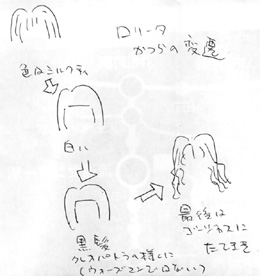 ロリータ
かつらの変遷
色はミルクティ
白い
黒髪
クレオパトラの様に
(ウォーズマンではない)
最後は
ゴージャスに
たてまき